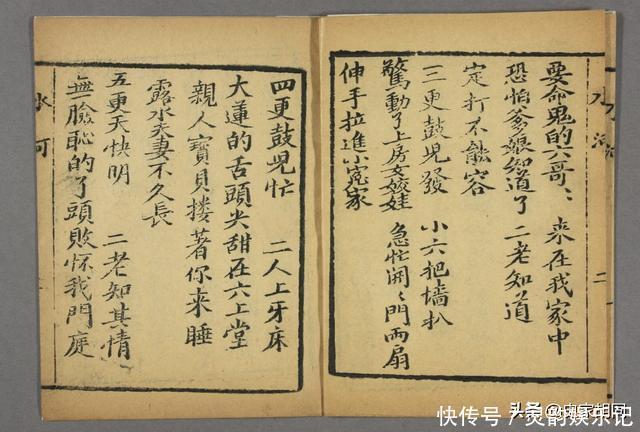 要命鬼的六哥、來在我家中
恐怕爹娘知道了 二老知道
定打不能容
三更鼓兒發 小六把墙扒
驚動了上房女嬌娃 急忙開〻門兩扇
伸手拉進小冤家
四更鼓兒忙 二人上牙床
大蓮的舌頭尖甜在六上堂
親人寶貝摟著你來睡
露水夫妻不久長
五更天快明 二老知其情
無臉恥的了頭敗怀我門庭
水
二
头条
快传号/灵韵娱乐记